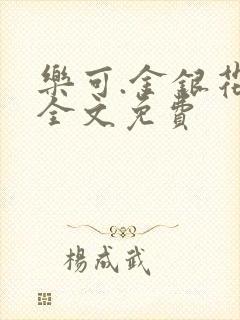 樂可.金銀花
全文免費
楊成武